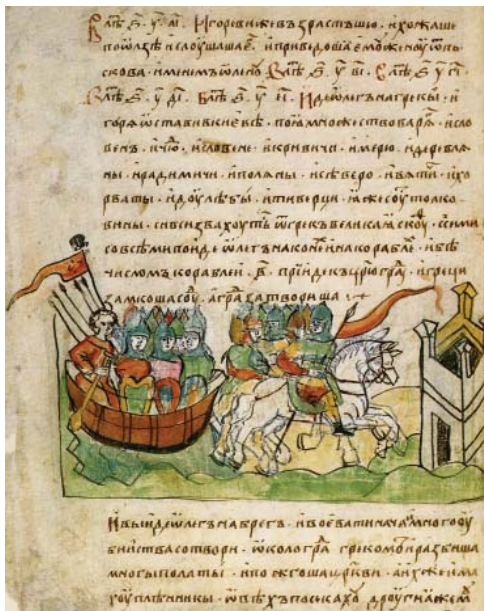 В лѣ ҂ѕ. у аі. Игореви же възрастъшю. и хожаше
по ѡлзѣ и слоушаша е. и приведоша емоу женоу ѿ пь
скова именемъ ѡленоу В лѣ ҂ѕ. у ві. В лѣ ҂ѕ. у гі
В лѣ ҂ѕ. у ді. В лѣ ҂ѕ. у еі. Иде ѡлегъ на грекы. и
горя ѡставивъ киевѣ. поя множество варя. и сло
венъ. и чю. и словене. и кривичи. и мерю. и деревля
ны. и радимичи. и поляны. и сѣверо. и вятичи. и хо
рваты. и доулѣбы. и тиверци. яже соу толко
вины. си вси звахоуть ѿ грекъ великая скоу. с сими
со всѣми поиде ѡлегъ на кони и на корабле. и бѣ
числомъ кораблеи. в. прииде къ црюгра. и греци
замкоша соу. а гра затвориша
И выиде ѡлегъ на брегъ. и воевати нача. и много оу
бииства сотвори. ѡколо гра грекомъ. и разбиша
многы полаты. и пожгоша цркви. а их же има
хоу плѣнникы. ѡвѣхъ посѣкахоу. дроугия же м